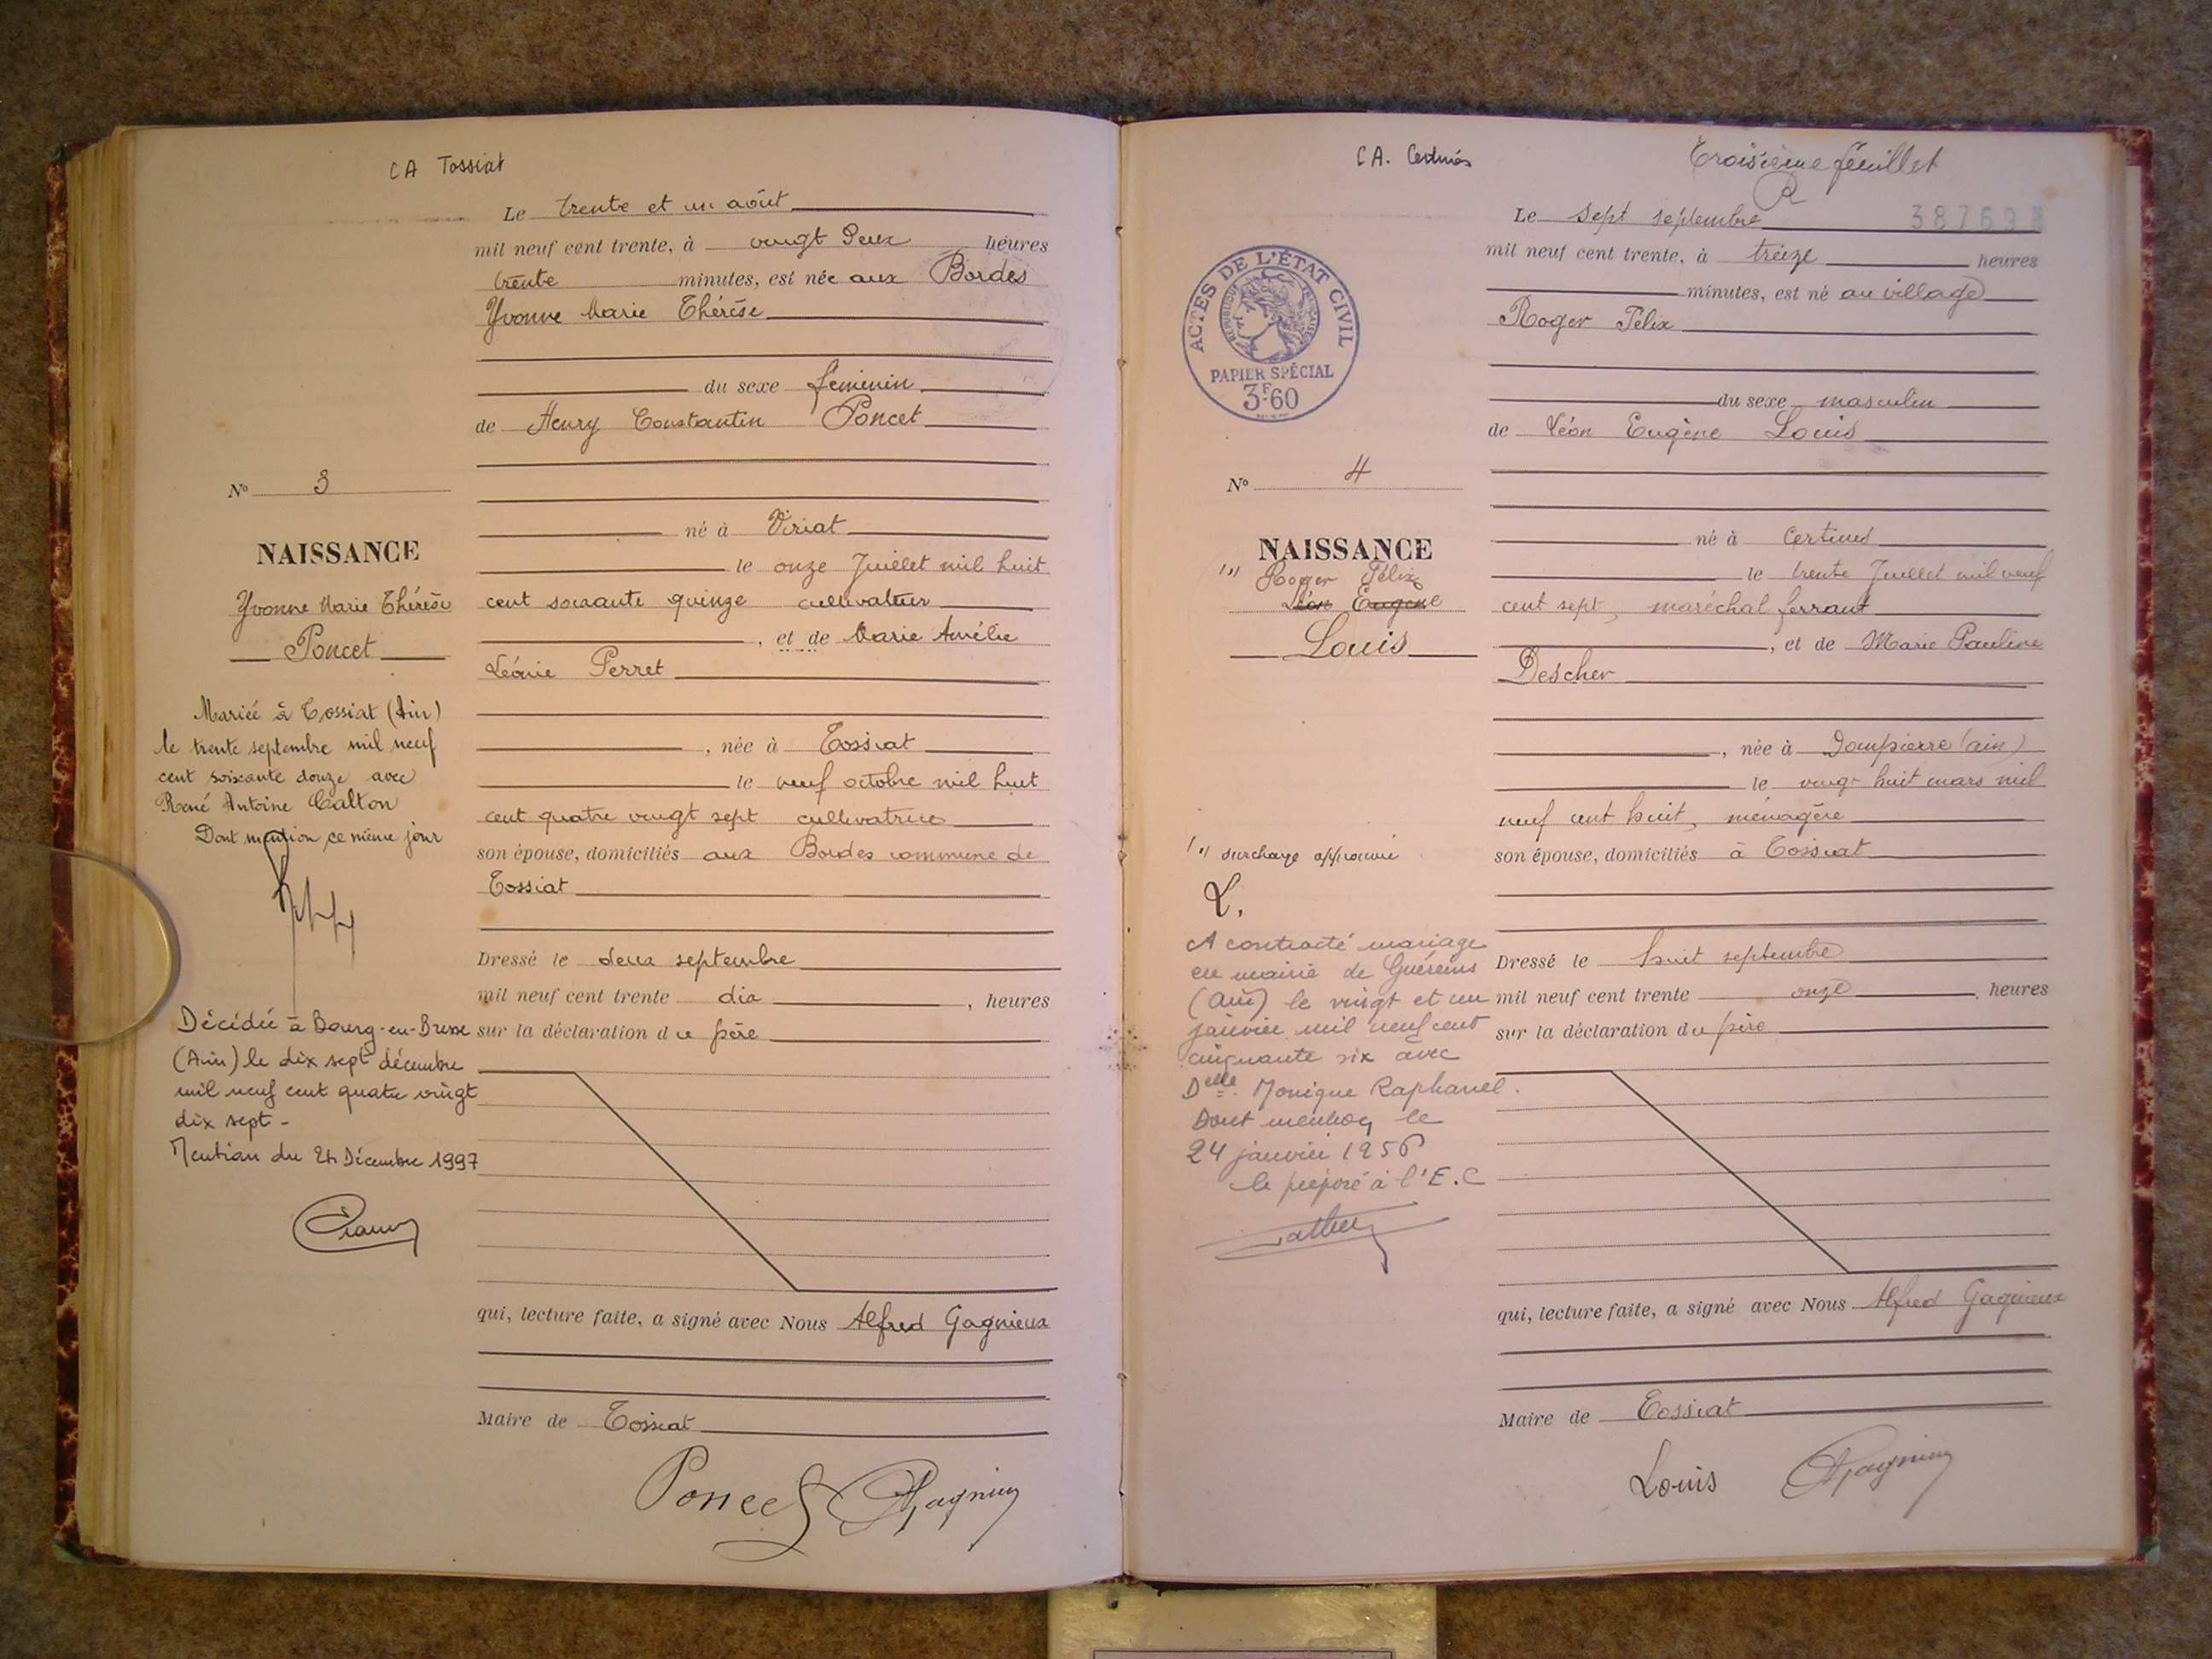 CA Tossiat
Le trente et un août
mil neuf cent trente, à vingt deux heures
trente minutes, est née aux Bordes
Yvonne Marie Thérèse
du sexe féminin
de Henry Constantin Poncet
né à Viriat
le onze Juillet mil huit
cent soixante quinze cultivateur
, et de Marie Amélie
Léonie Perret
, née à Tossiat
le neuf octobre mil huit
cent quatre vingt sept cultivatrice
son épouse, domiciliés aux Bordes commune de
Tossiat
Dressé le deux septembre
mil neuf cent trente dix , heures
sur la déclaration du père
qui, lecture faite, a signé avec Nous Alfred Gagnieux
Maire de Tossiat
Poncet Gagnieux
No 3
NAISSANCE
Yvonne Marie Thérèse
Poncet
Mariée à Tossiat (Ain)
le trente septembre mil neuf
cent soixante douze avec
René Antoine Calton
Dont mention ce même jour
Décédée à Bourg-en-Bresse
(Ain) le dix sept décembre
mil neuf cent quatre vingt
dix sept -
Mention du 24 Décembre 1997
CA. Certines
Troisième feuillet
Le sept septembre
38769
mil neuf cent trente, à treize heures
minutes, est né au village
Roger Félix
du sexe masculin
de Léon Eugène Louis
né à Certines
le trente Juillet mil neuf
cent sept, maréchal ferrant
, et de Marie Pauline
Descher
, née à Dompierre (ain)
le vingt huit mars mil
neuf cent huit, ménagère
son épouse, domiciliés à Tossiat
Dressé le huit septembre
mil neuf cent trente onze heures
sur la déclaration du père
qui, lecture faite, a signé avec Nous Alfred Gagnieux
Maire de Tossiat
Louis Gagnieux
ACTES DE L'ÉTAT CIVIL
RÉPUBLIQUE FRANÇAISE
PAPIER SPÉCIAL
3F.60
No 4
NAISSANCE
1) Roger Félix
Léon Eugène
Louis
1) surcharge approuvée
L.
A contracté mariage
en mairie de Guéreins
(Ain) le vingt et un
janvier mil neuf cent
cinquante six avec
Delle Monique Raphanel.
Dont mention le
24 janvier 1956
le préposé à l'E.C